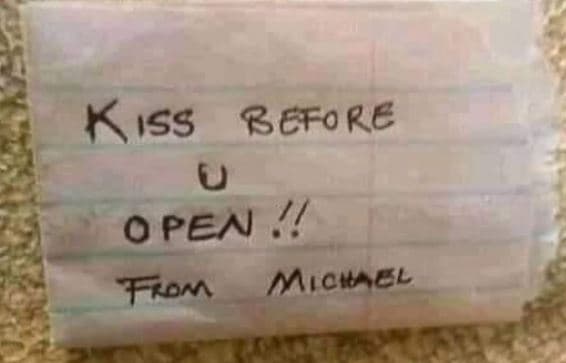 KISS BEFORE
U
OPEN!!
FROM MICHAEL